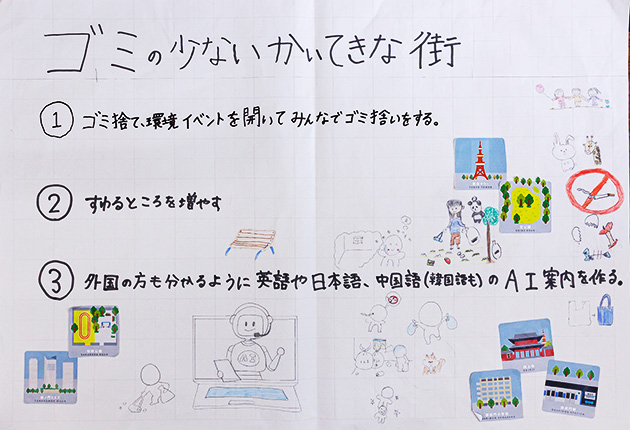 ゴミの少ないかいてきな街
① ゴミ捨て、環境イベントを開いてみんなでゴミ拾いをする。
② すわるところを増やす
③ 外国の方も分かるように英語や日本語、中国語(韓国語も)のAI案内を作る。
AI